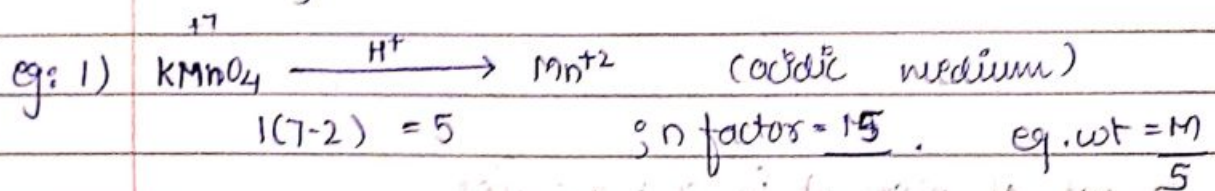 +7
eg: 1) KMnO4 —H+→ Mn+2 (acidic medium)
1(7-2) = 5 ; n factor = 15 . eq. wt = M/5